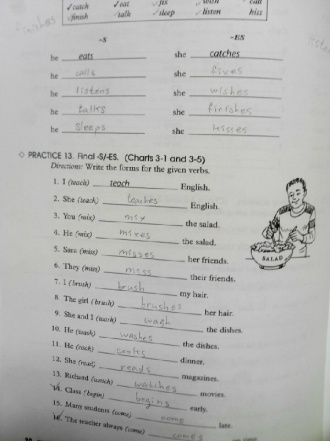 ✓catch ✓eat ✓fix ✓wish ✓call
✓finish ✓talk ✓sleep ✓listen kiss
-S -ES
he eats she catches
he calls she fixes
he listens she wishes
he talks she finishes
he sleeps she kisses
◇ PRACTICE 13. Final -S/-ES. (Charts 3-1 and 3-5)
Directions: Write the forms for the given verbs.
1. I (teach) teach English.
2. She (teach) teaches English.
3. You (mix) mix the salad.
4. He (mix) mixes the salad.
5. Sara (miss) misses her friends.
6. They (miss) miss their friends.
7. I (brush) brush my hair.
8. The girl (brush) brushes her hair.
9. She and I (wash) wash the dishes.
10. He (wash) washes the dishes.
11. He (cook) cooks dinner.
12. She (read) reads magazines.
13. Richard (watch) watches movies.
14. Class (begin) begins early.
15. Many students (come) come late.
16. The teacher always (come) comes
SALAD